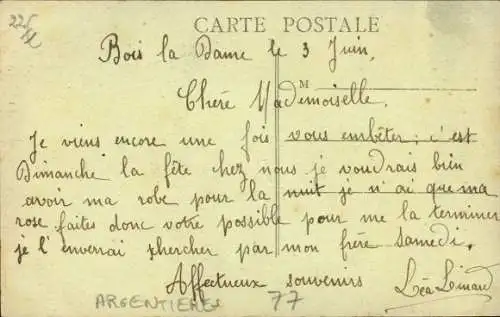 225
CARTE POSTALE
Bois la Dame le 3 Juin,
M
Cheré Mademoiselle.
Je viens encore une fois vous embêter; c'est
Dimanche la fête chez nous je voudrais bien
avoir ma robe pour la nuit je n'ai que ma
rose faites donc votre possible pour me la terminer
je l'enverrai chercher par mon frère samedi.
Affectueux souvenirs
Léa Linard
ARGENTIERES 77